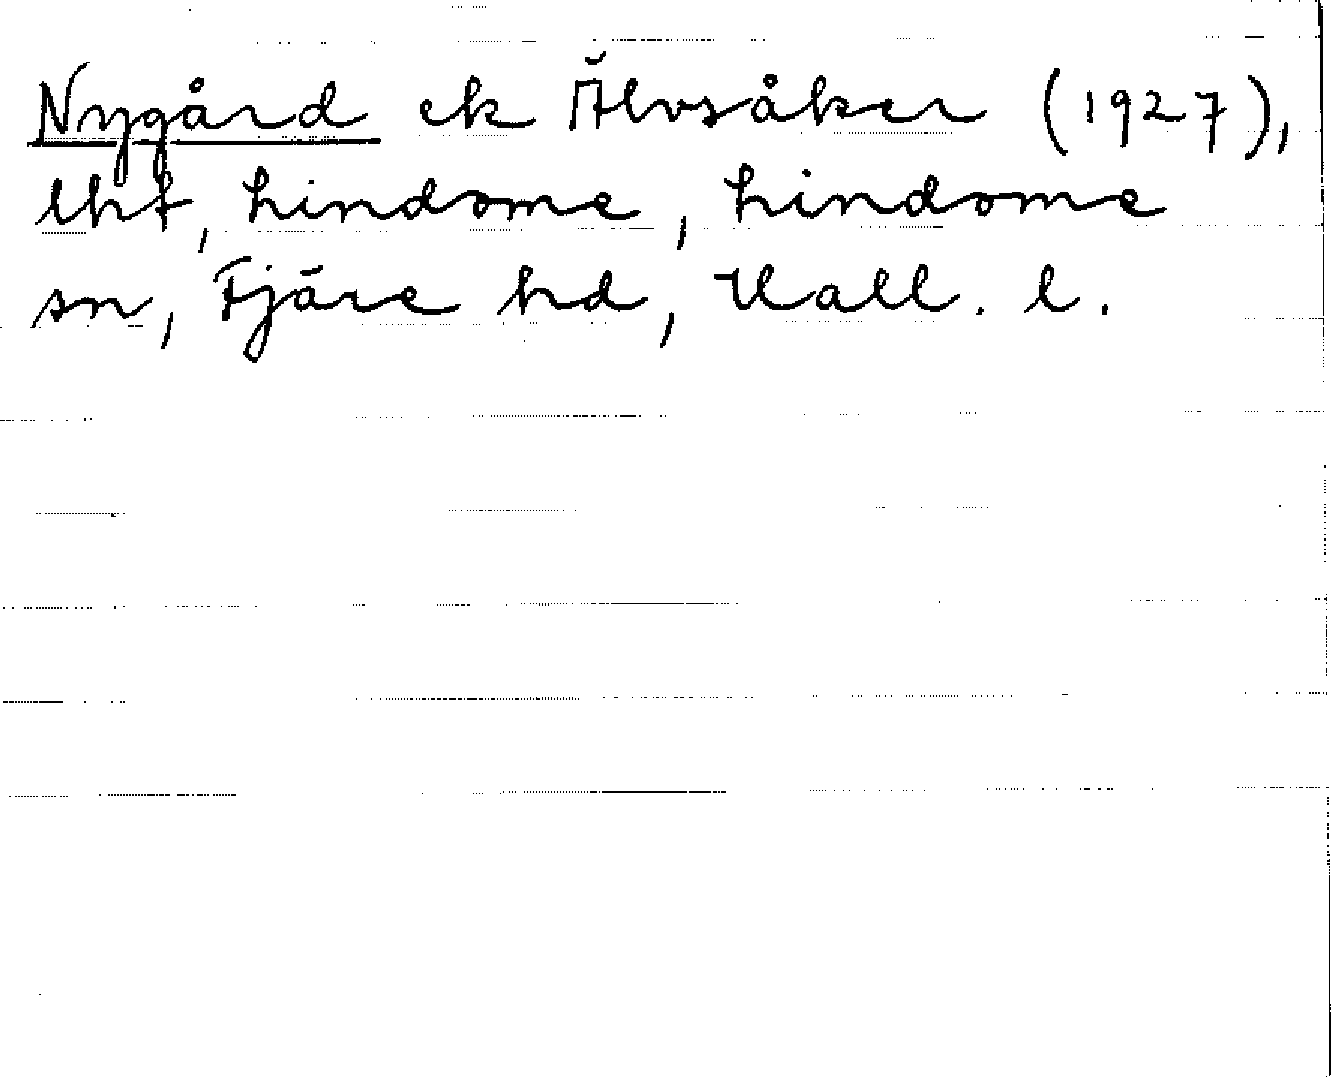 Nygård ek Älvsåker (1927),
lht, Lindome, Lindome
sn, Fjäre hd, Hall. l.